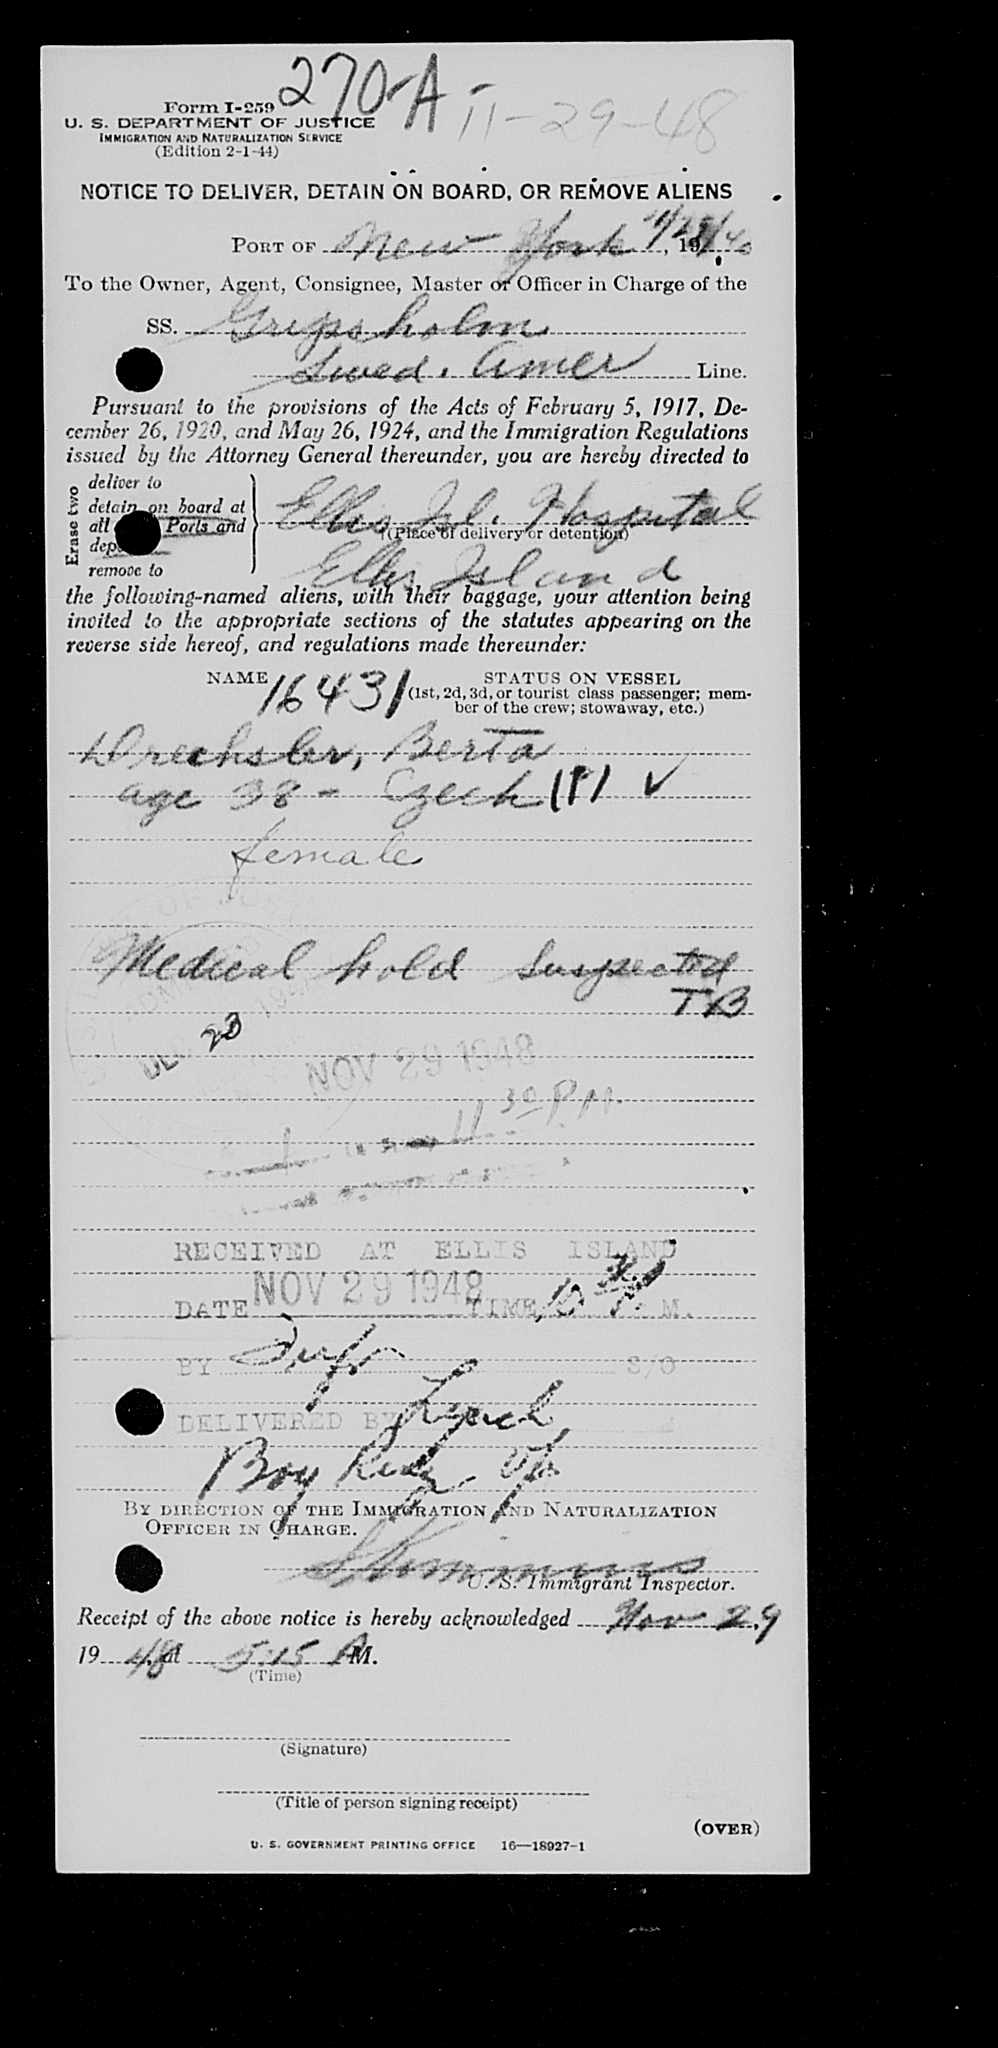 270-A
11-29-48
Form I-259
U. S. DEPARTMENT OF JUSTICE
IMMIGRATION AND NATURALIZATION SERVICE
(Edition 2-1-44)
NOTICE TO DELIVER, DETAIN ON BOARD, OR REMOVE ALIENS
PORT OF New York 11/28, 19
To the Owner, Agent, Consignee, Master or Officer in Charge of the
SS. Gripsholm
Swed. Amer Line.
Pursuant to the provisions of the Acts of February 5, 1917, De-
cember 26, 1920, and May 26, 1924, and the Immigration Regulations
issued by the Attorney General thereunder, you are hereby directed to
Erase two
deliver to
detain on board at
all Ports and
remove to
Ellis Isl. Hospital
(Place of delivery or detention)
Ellis Island
the following-named aliens, with their baggage, your attention being
invited to the appropriate sections of the statutes appearing on the
reverse side hereof, and regulations made thereunder:
NAME 16431 STATUS ON VESSEL
(1st, 2d, 3d, or tourist class passenger; mem-
ber of the crew; stowaway, etc.)
Drechsler, Berta
age 38 - Czech
female
Medical hold Suspected
TB
23
NOV 29 1948
11 30 P M.
RECEIVED AT ELLIS ISLAND
DATE NOV 29 1948 TIME M.
BY S/O
DELIVERED BY Lynch
BY DIRECTION OF THE IMMIGRATION AND NATURALIZATION
OFFICER IN CHARGE.
U. S. Immigrant Inspector.
Receipt of the above notice is hereby acknowledged Nov 29,
1948, at 5:15 AM.
(Time)
(Signature)
(Title of person signing receipt)
(OVER)
U. S. GOVERNMENT PRINTING OFFICE 16—18927-1